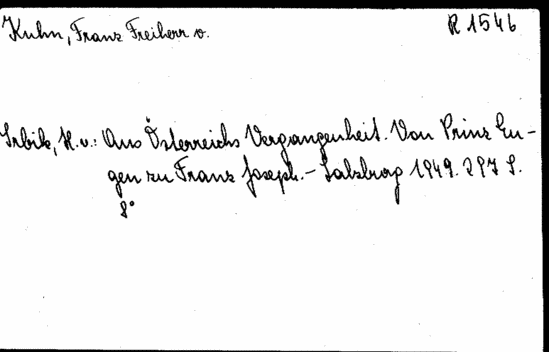 Kuhn, Franz Freiherr v.
R 1546
Srbik, H. v.: Aus Österreichs Vergangenheit. Von Prinz Eu-
gen zu Franz Joseph. - Salzburg 1949. 297 S.
8°